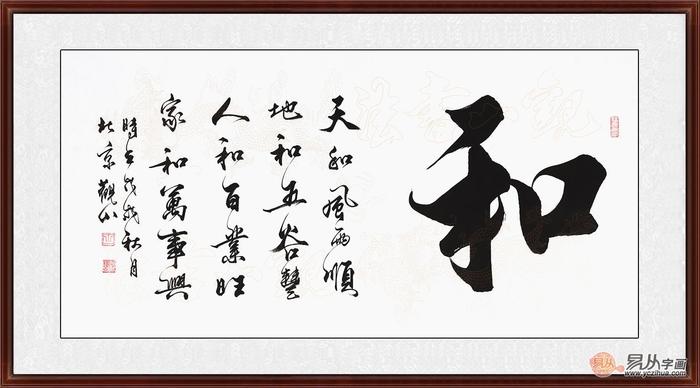 和
天和風雨順
地和五谷豐
人和百業旺
家和萬事興
時在戊戌秋月
北京觀山
易从字画
www.yczihua.com